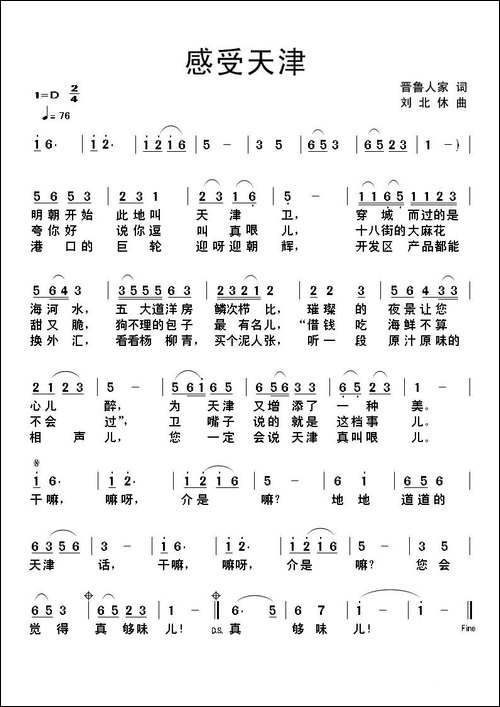 感受天津
1=D 2/4
晋鲁人家 词
♩=76
刘北休 曲
1 6· | 1 2· | 1 2 1 6 | 5 · 3 | 3 5 | 6 5 3 | 6 5 2 3 | 1 - )
5 6 5 3 | 2 3 1 | 2 3 1 6 | 5 - | 1 1 6 5 | 1 1 2 3
明朝开始 此地叫 天津 卫， 穿城 而过的是
夸你好 说你逗 叫真哏 儿， 十八街的大麻花
港口的 巨轮 迎呀迎朝 辉， 开发区 产品都能
海河水， 五大道洋房 鳞次栉比， 璀璨的 夜景让您
甜又脆， 狗不理的包子 最有名儿， “借钱 吃海鲜不算
换外汇， 看看杨柳青， 买个泥人张， 听一段 原汁原味的
2 1 2 3 | 5 - | 5 6 1 6 5 | 3 2 1 2 3 | 1 6 5 2 3 | 1 -
心儿 醉， 为天津 又增添了 一种 美。
不会 过”， 卫嘴子 说的就是 这档事 儿。
相声 儿， 您一定 会说天津 真叫哏 儿。
1 6· | 1 2· | 1 2 1 6 | 5 · 3 | 1 2 1 6 | 5 6 5
干嘛， 嘛呀， 介是 嘛？ 地地 道道的
6 3 5 6 | 3 - | 1 6· | 1 2· | 1 2 1 6 | 5 · 3
天津 话， 干嘛， 嘛呀， 介是 嘛？ 您会
6 5 3 | 6 5 2 3 | 1 - | 6· 5 | 6 7 | 1 - | 1 -
觉得 真够味 儿！ D.S. 真 够味 儿！ Fine